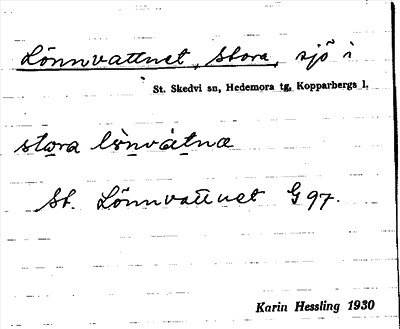 Lönnvattnet, Stora, sjö i
St. Skedvi sn, Hedemora tg, Kopparbergs l.
stora lönvátna
St. Lönnvattnet G 97.
Karin Hessling 1930